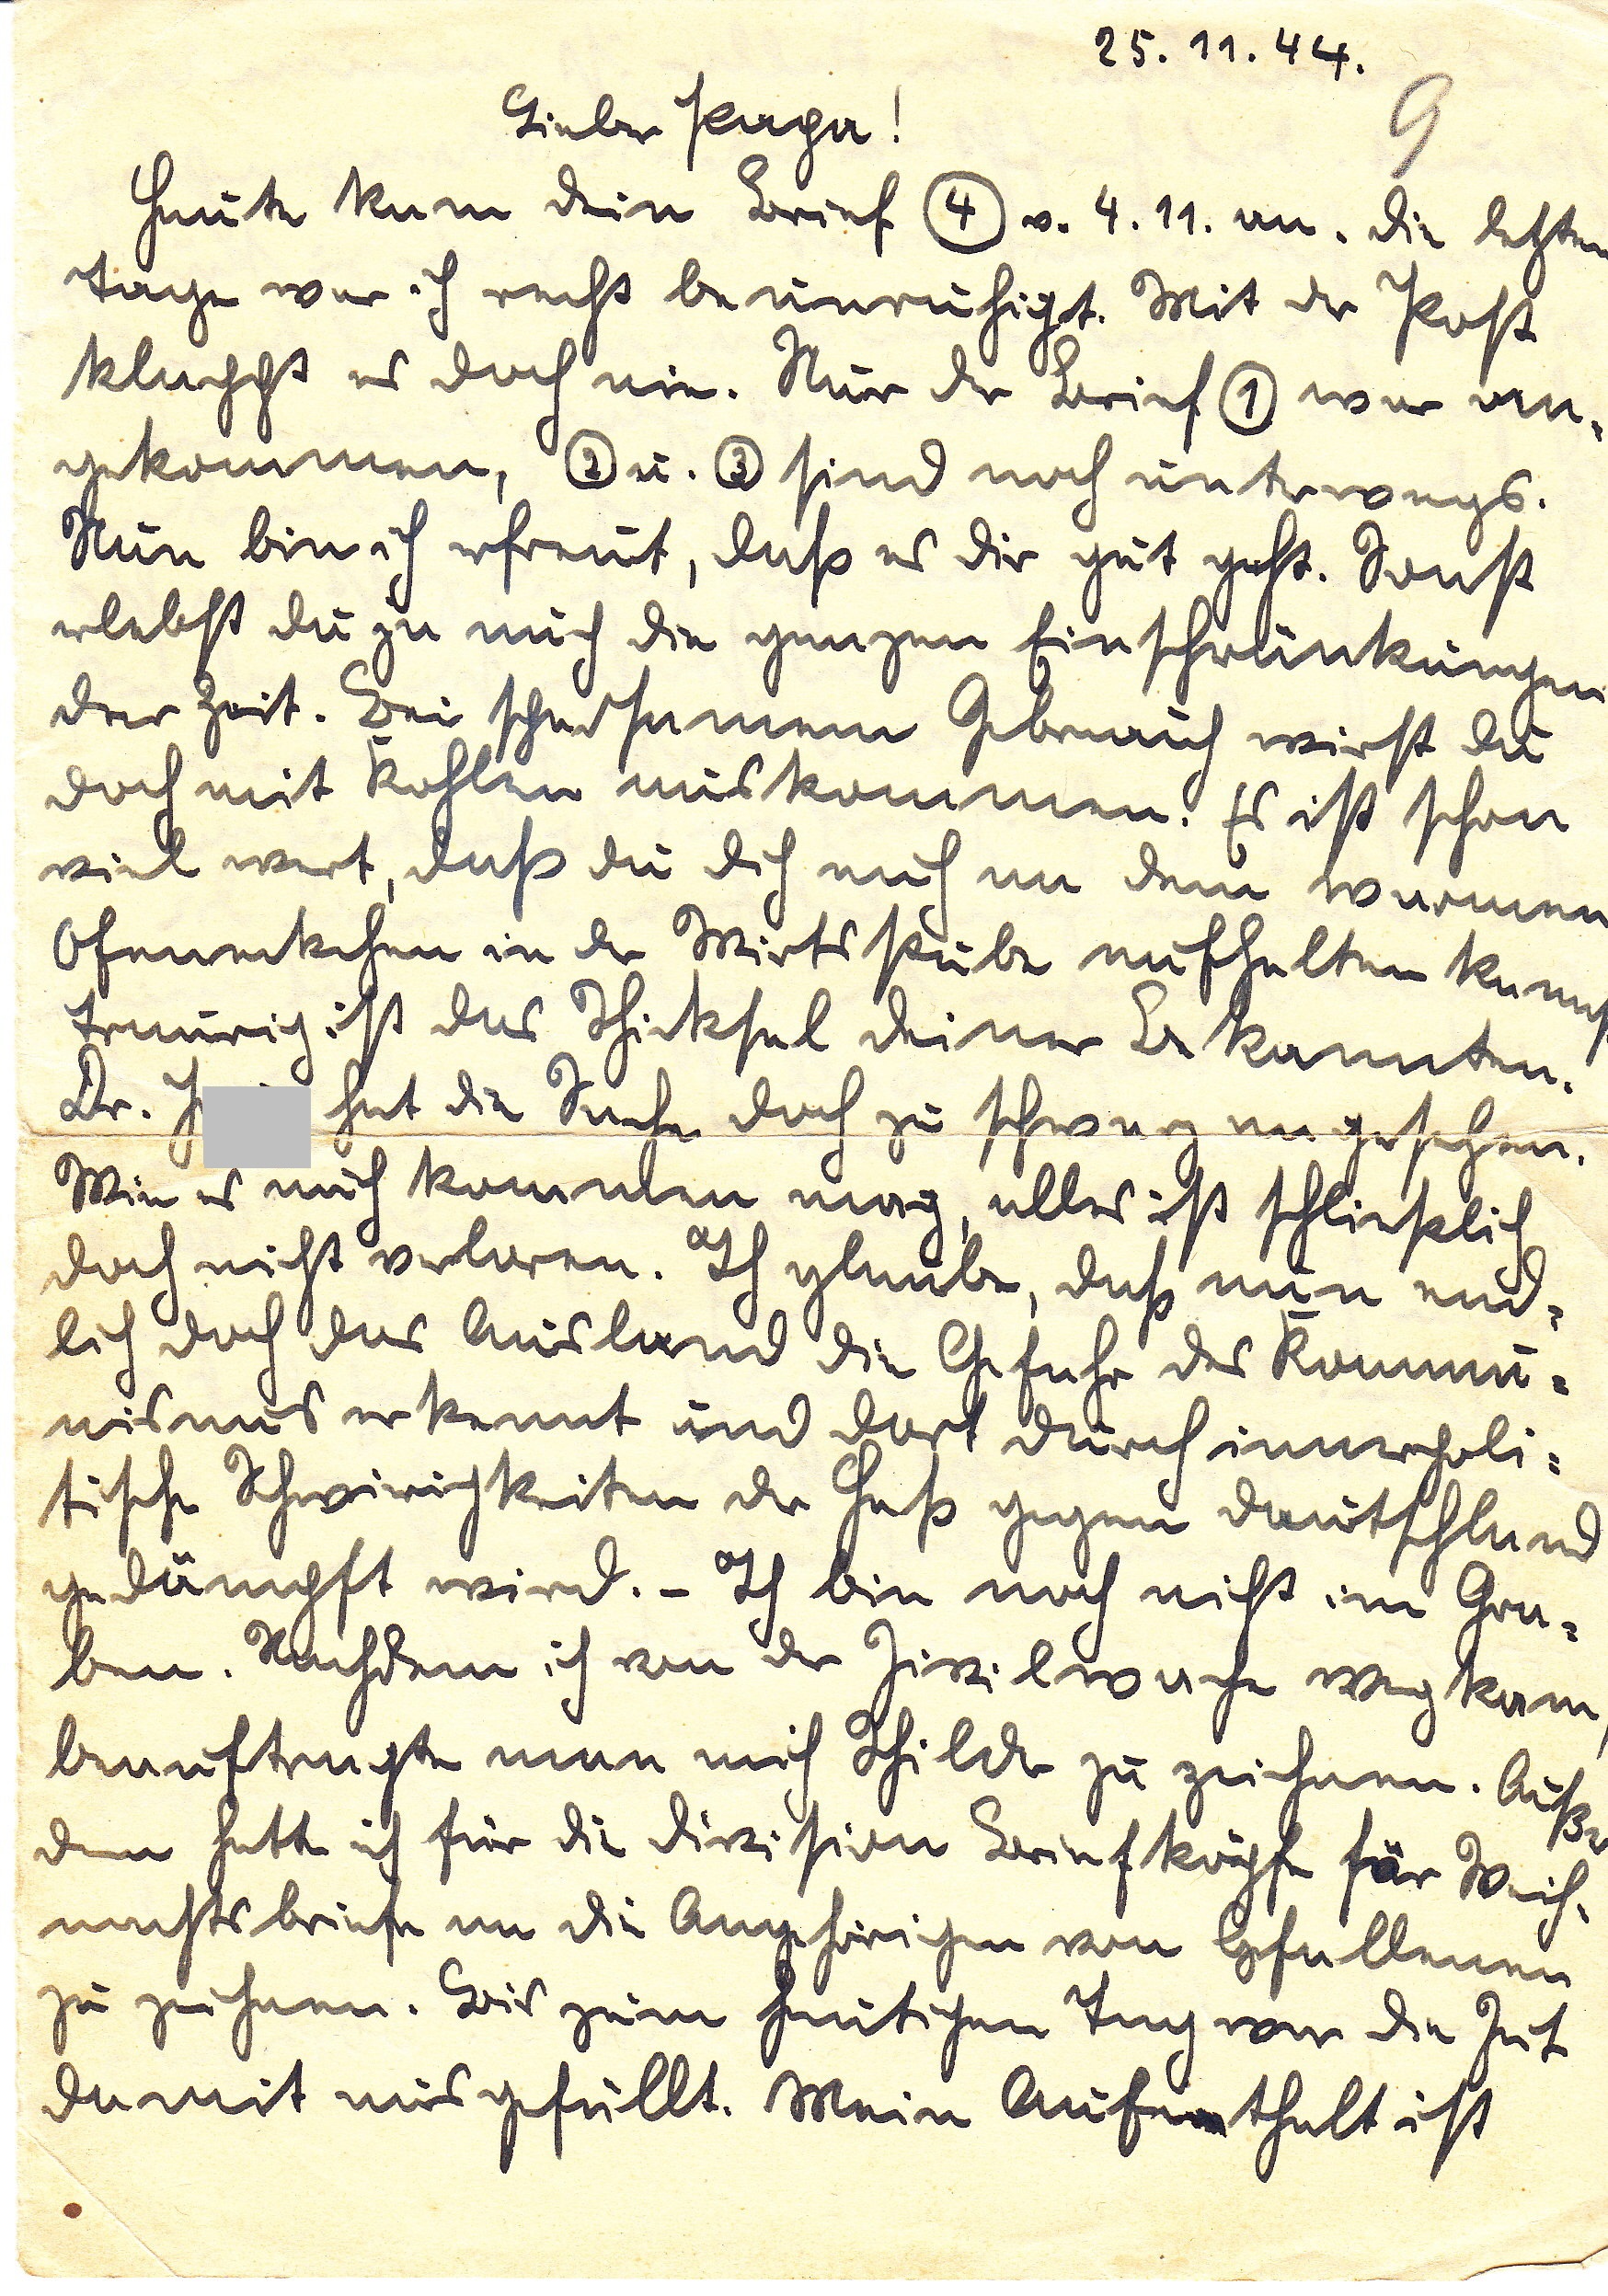 25.11.44.
9
Lieber Papa!
Heute kam dein Brief 4 v. 4.11. an. Die letzten
Tage war ich recht beunruhigt. Mit der Post
klappt es doch nie. Nur der Brief 1 war an-
gekommen, 2 u. 3 sind noch unterwegs.
Nun bin ich erfreut, daß es dir gut geht. Sonst
erlebst du ja auch die ganzen Einschränkungen
der Zeit. Bei sparsamem Gebrauch wirst du
doch mit Kohlen auskommen. Es ist schon
viel wert, daß du dich auch an dem warmen
Ofeneckchen in der Wirtsstube aufhalten kannst
Traurig ist das Schicksal deiner Bekannten.
Dr. J hat die Sache doch zu schwarz angesehen.
Wie es auch kommen mag, alles ist schließlich
doch nicht verloren. Ich glaube, daß nun end-
lich doch das Ausland die Gefahr des Kommu-
nismus erkennt und dort durch innerpoli-
tische Schwierigkeiten der Haß gegen Deutschland
gedämpft wird. – Ich bin noch nicht im Gra-
ben. Nachdem ich von der Zivilwache wegkam,
beauftragte man mich Schilder zu zeichnen. Auße
dem hatte ich für die Division Briefköpfe für Weih-
nachtsbriefe an die Angehörigen von Gefallenen
zu zeichnen. Bis zum heutigen Tag war die Zeit
damit ausgefüllt. Mein Aufenthalt ist